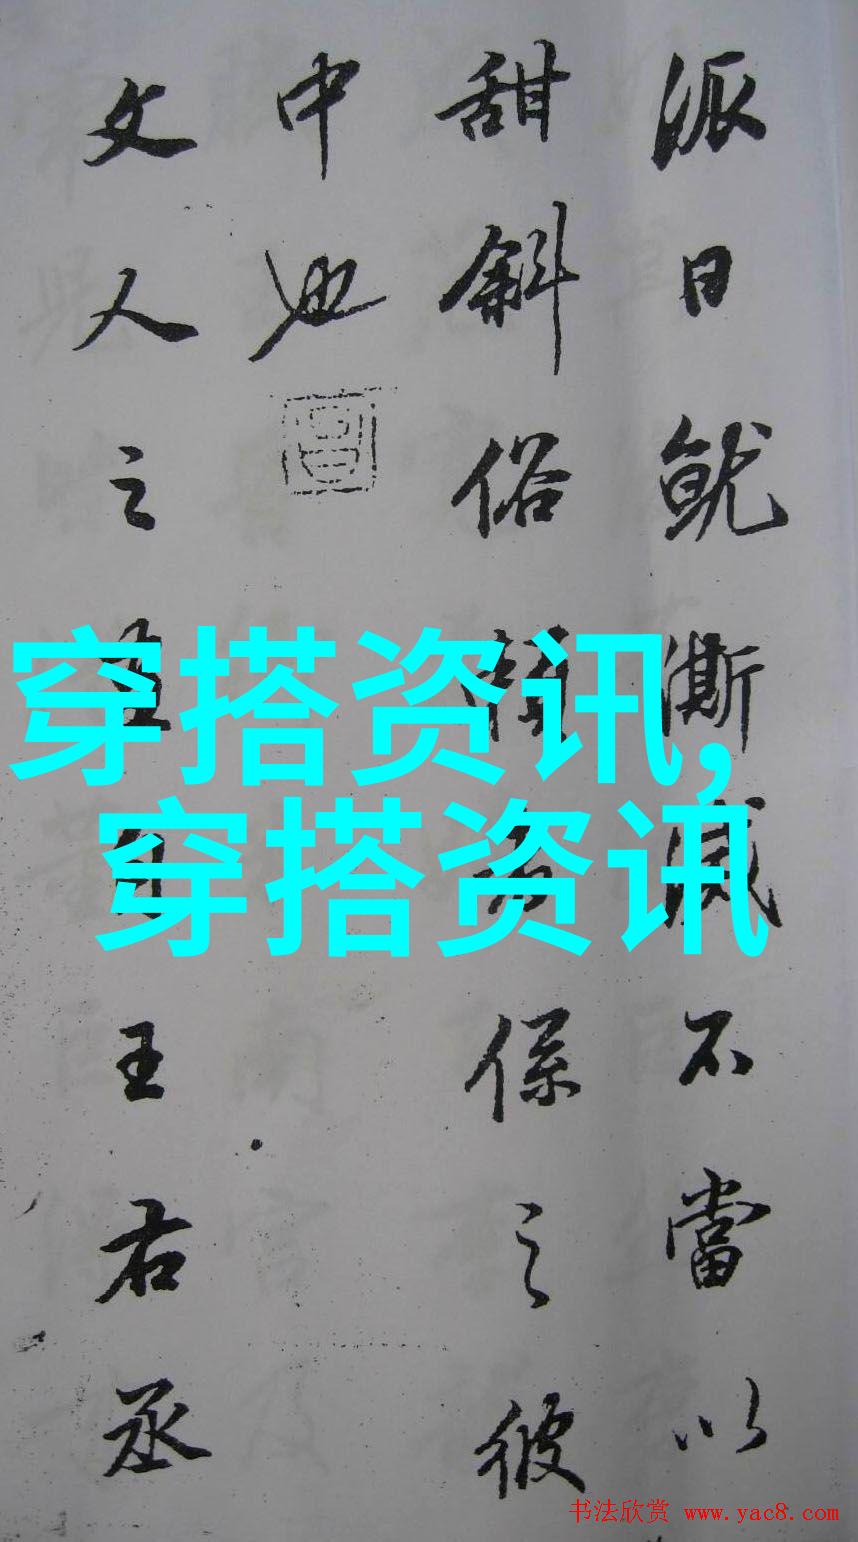 派日就澌滅不當以
甜斜俗賴者係之彼
中也
文人之畫自王右丞
穿搭资讯,
穿搭资讯
书法欣赏 www.yac8.com